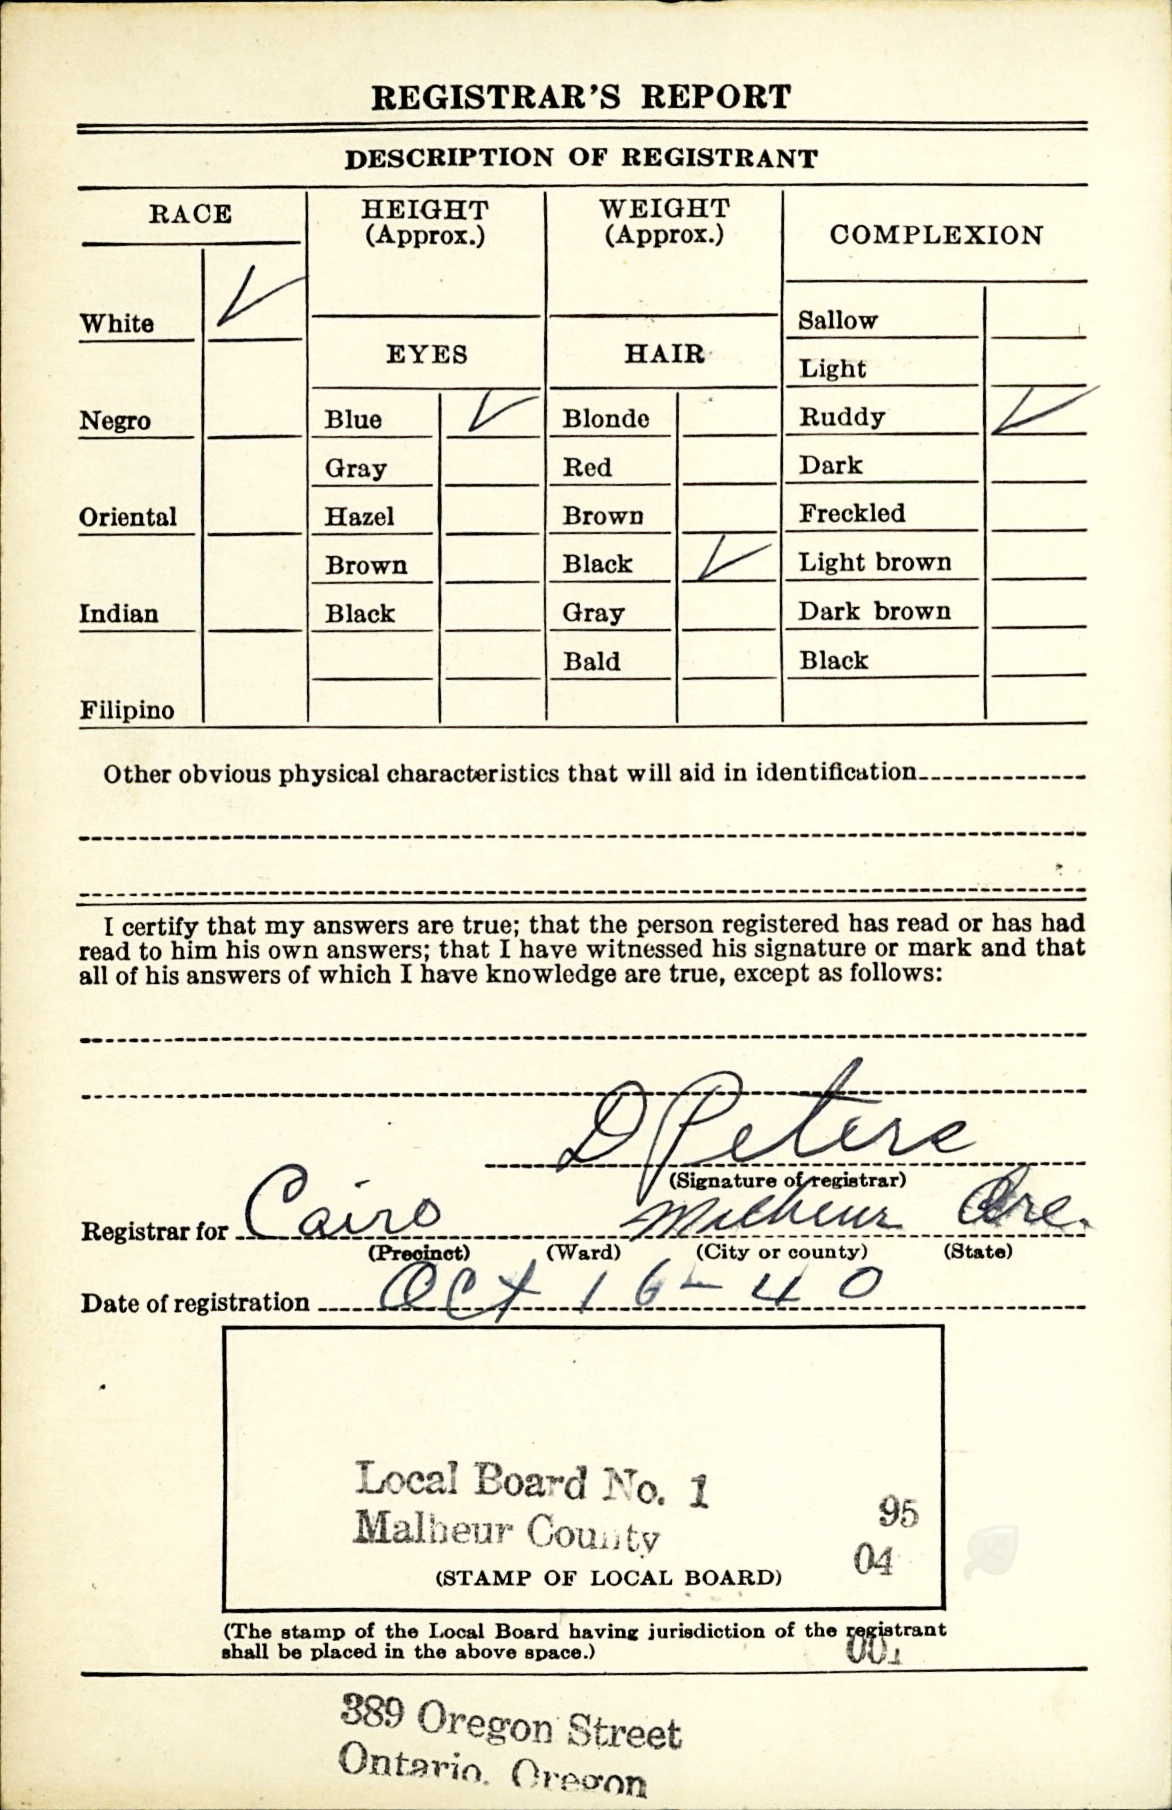 REGISTRAR'S REPORT
DESCRIPTION OF REGISTRANT
RACE
HEIGHT
(Approx.)
WEIGHT
(Approx.)
COMPLEXION
White ✓
Negro
Oriental
Indian
Filipino
EYES
Blue ✓
Gray
Hazel
Brown
Black
HAIR
Blonde
Red
Brown
Black ✓
Gray
Bald
Sallow
Light
Ruddy ✓
Dark
Freckled
Light brown
Dark brown
Black
Other obvious physical characteristics that will aid in identification
I certify that my answers are true; that the person registered has read or has had
read to him his own answers; that I have witnessed his signature or mark and that
all of his answers of which I have knowledge are true, except as follows:
D Peters
(Signature of registrar)
Registrar for Cairo Malheur Ore.
(Precinct) (Ward) (City or county) (State)
Date of registration Oct 16-40
Local Board No. 1 95
Malheur County 04
(STAMP OF LOCAL BOARD)
(The stamp of the Local Board having jurisdiction of the registrant
shall be placed in the above space.) 001
389 Oregon Street
Ontario, Oregon